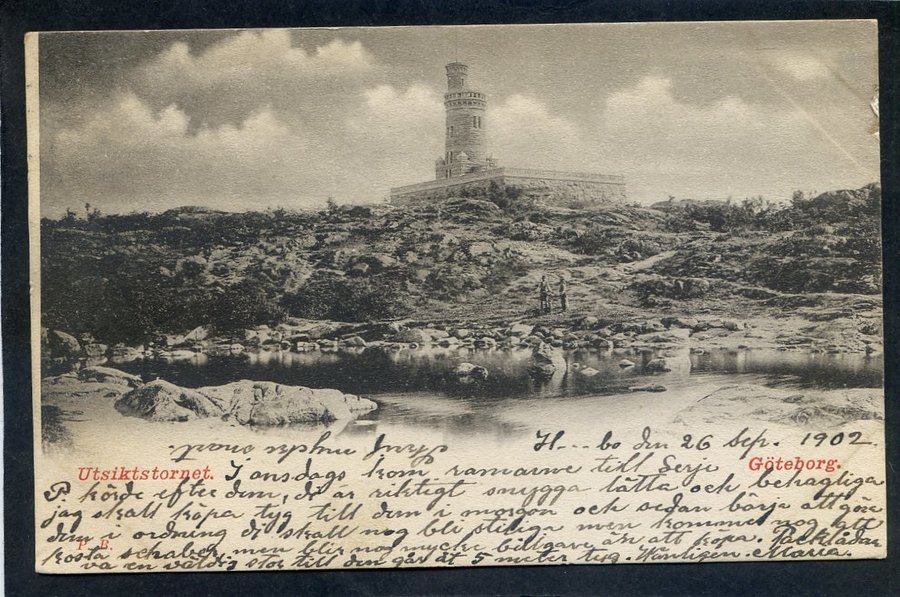 H...bo den 26 Sep. 1902
Skrif mycket snart.
Utsiktstornet.
Göteborg.
I onsdags kom ramarne till Serje
P. körde efter dem, di är riktigt snygga lätta och behagliga
jag skall köpa tyg till dem i morgon och sedan börja att göra
dem i ordning di skall nog bli stiliga men kommer nog att
kosta schaber, men blir nog mycke billigare än att köpa.
va en väldi stor till den går åt 5 meter tyg. Vänligen Maria.
P. B.